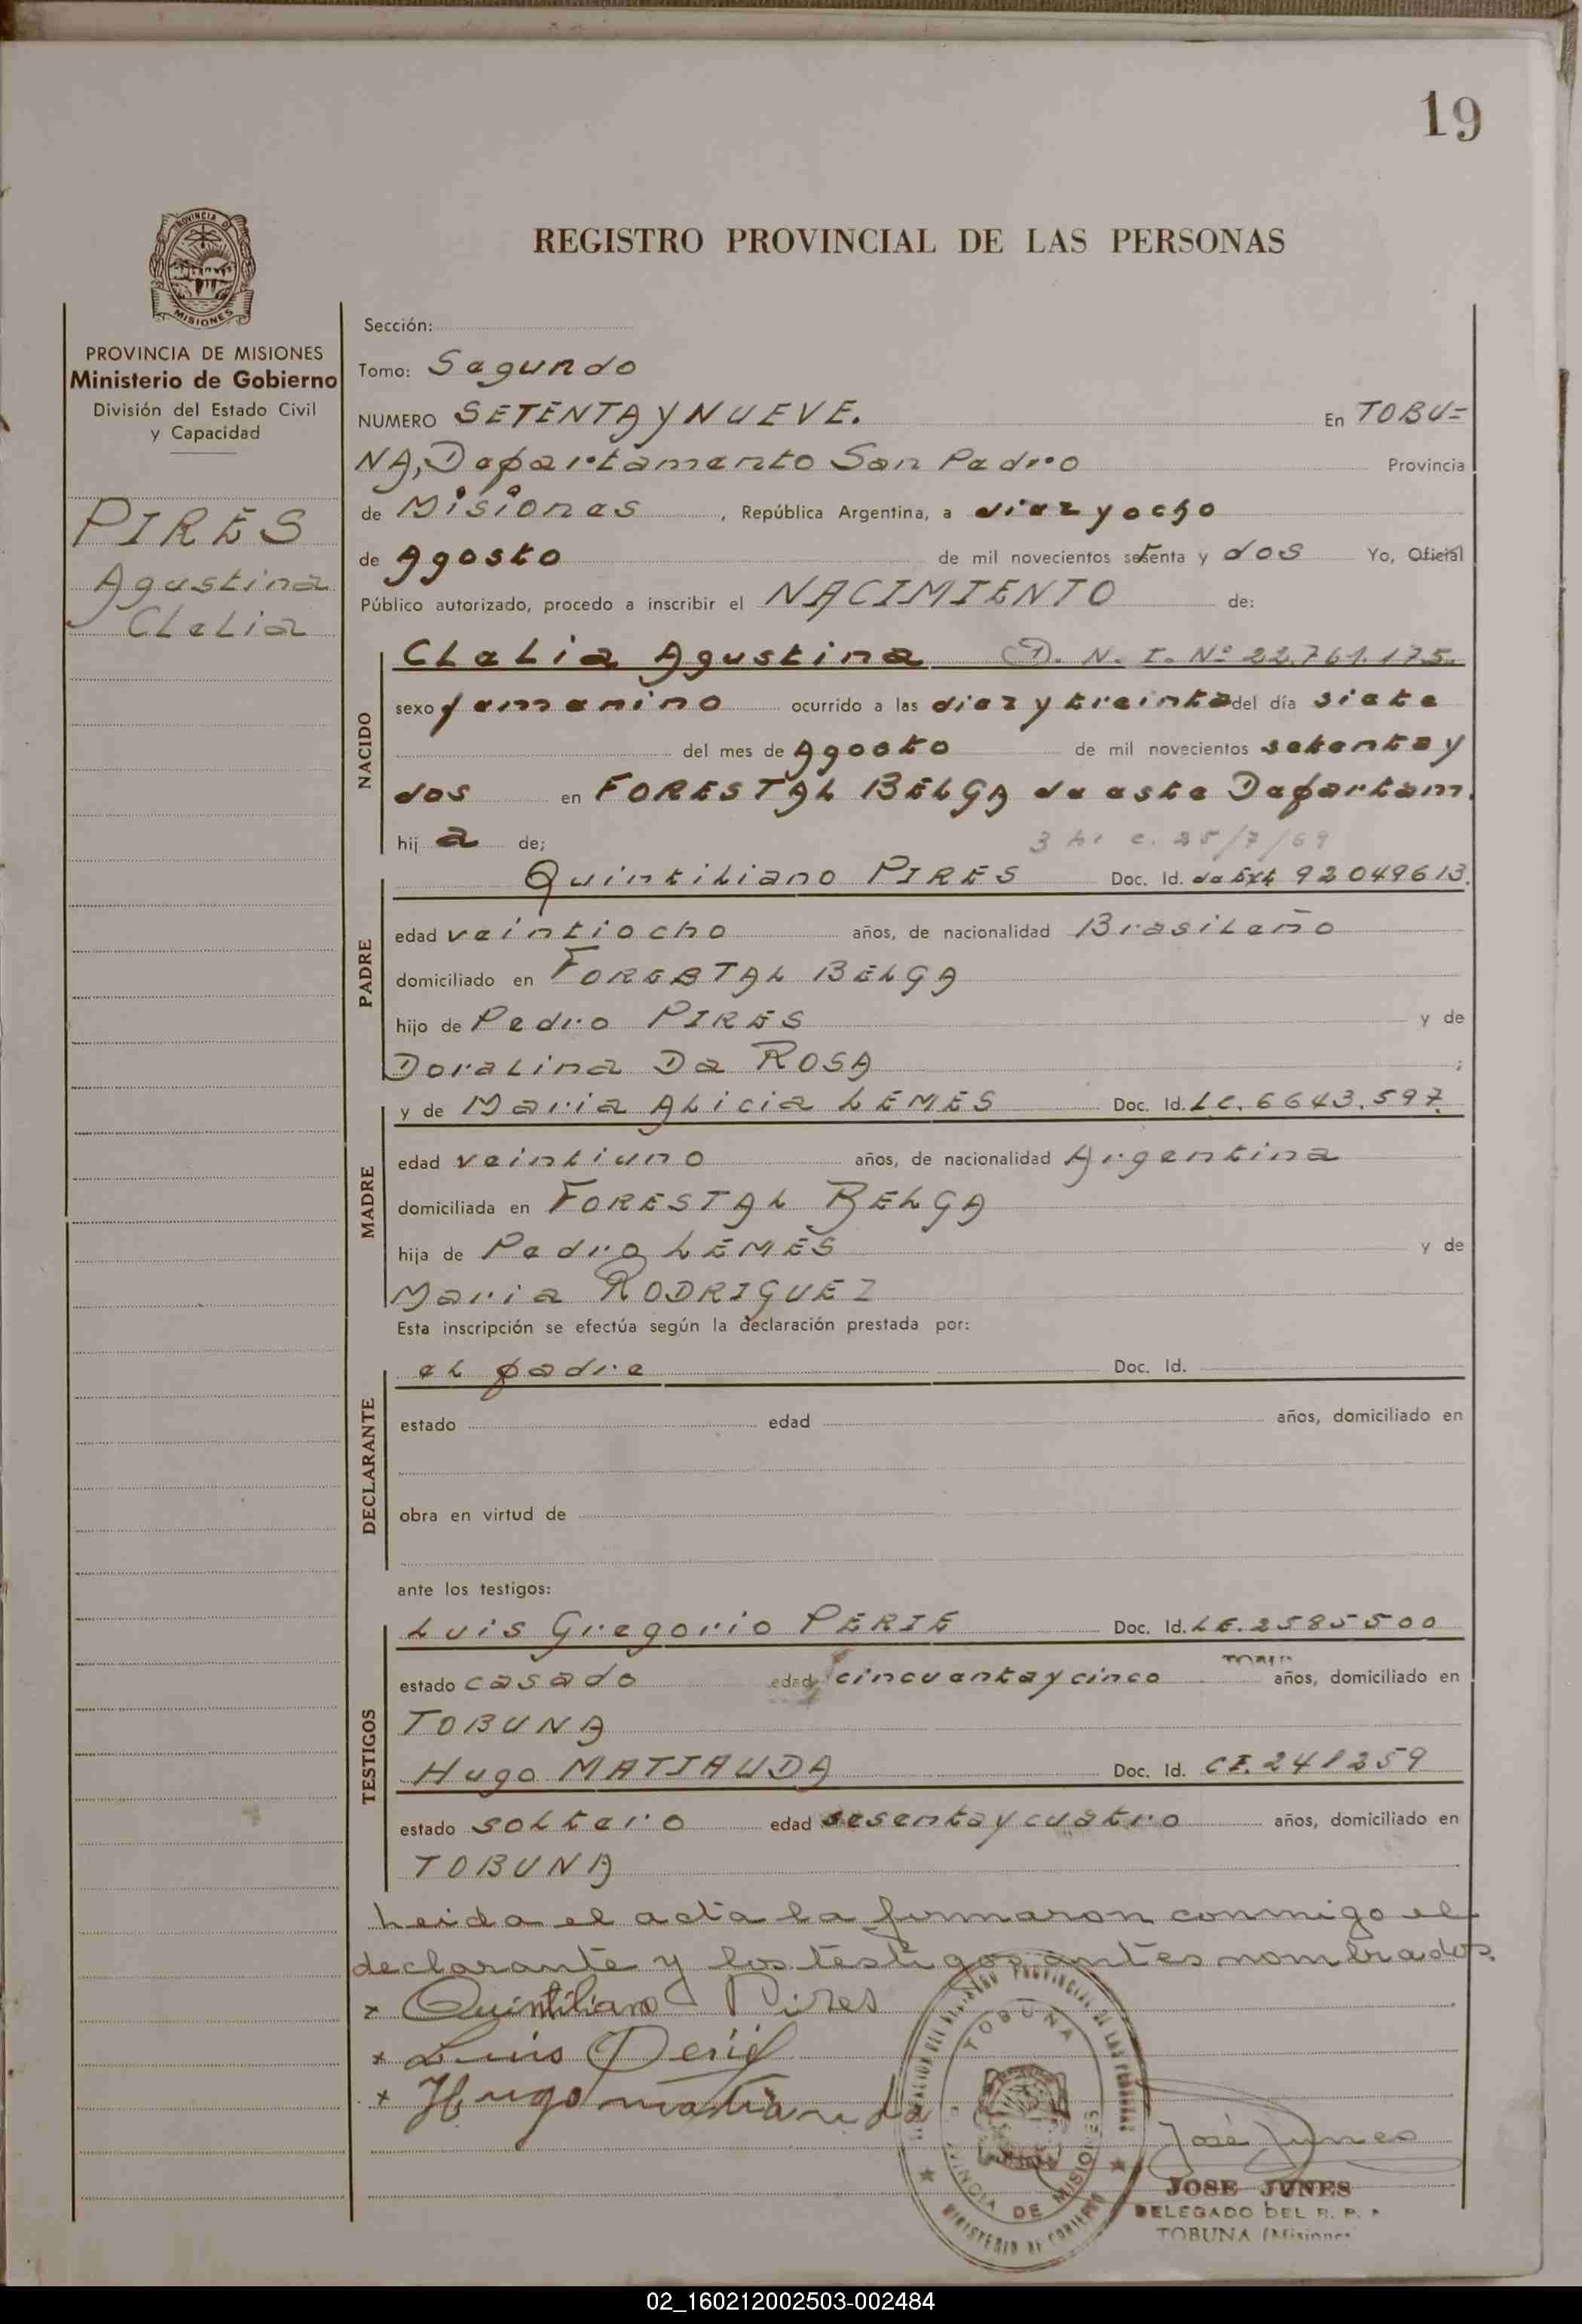 19
PROVINCIA DE
MISIONES
REGISTRO PROVINCIAL DE LAS PERSONAS
PROVINCIA DE MISIONES
Ministerio de Gobierno
División del Estado Civil
y Capacidad
PIRES
Agustina
Clelia
Sección:
Tomo: Segundo
NUMERO SETENTA y NUEVE. En TOBU=
NA, Departamento San Pedro Provincia
de Misiones, República Argentina, a diez y ocho
de Agosto de mil novecientos setenta y dos Yo, Oficial
Público autorizado, procedo a inscribir el NACIMIENTO de:
NACIDO
Clelia Agustina D. N. I. Nº 22.761.175.
sexo femenino ocurrido a las diez y treinta del día siete
del mes de Agosto de mil novecientos setenta y
dos en FORESTAL BELGA de este Departam.
hij a de;
PADRE
Quintiliano PIRES Doc. Id. de Ext 92049613.
edad veintiocho años, de nacionalidad Brasileño
domiciliado en FORESTAL BELGA
hijo de Pedro PIRES y de
Doralina Da ROSA ;
MADRE
y de Maria Alicia LEMES Doc. Id. LC. 6643.597
edad veintiuno años, de nacionalidad Argentina
domiciliada en FORESTAL BELGA
hija de Pedro LEMES y de
Maria RODRIGUEZ
Esta inscripción se efectúa según la declaración prestada por:
DECLARANTE
el padre Doc. Id.
estado edad años, domiciliado en
obra en virtud de
ante los testigos:
TESTIGOS
Luis Gregorio PERIE Doc. Id. LE. 2585500
estado casado edad cincuenta y cinco años, domiciliado en
TOBUNA
Hugo MATIAUDA Doc. Id. CI. 241259
estado soltero edad sesenta y cuatro años, domiciliado en
TOBUNA
Leida el acta la firmaron conmigo el
declarante y los testigos antes nombrados.
x Quintiliano Pires
x Luis Perié
x Hugo matiauda
TOBUNA
PROVINCIA DE MISIONES
MINISTERIO DE GOBIERNO
José Junes
JOSE JUNES
DELEGADO DEL R. P. P
TOBUNA (Misiones
02_160212002503-002484